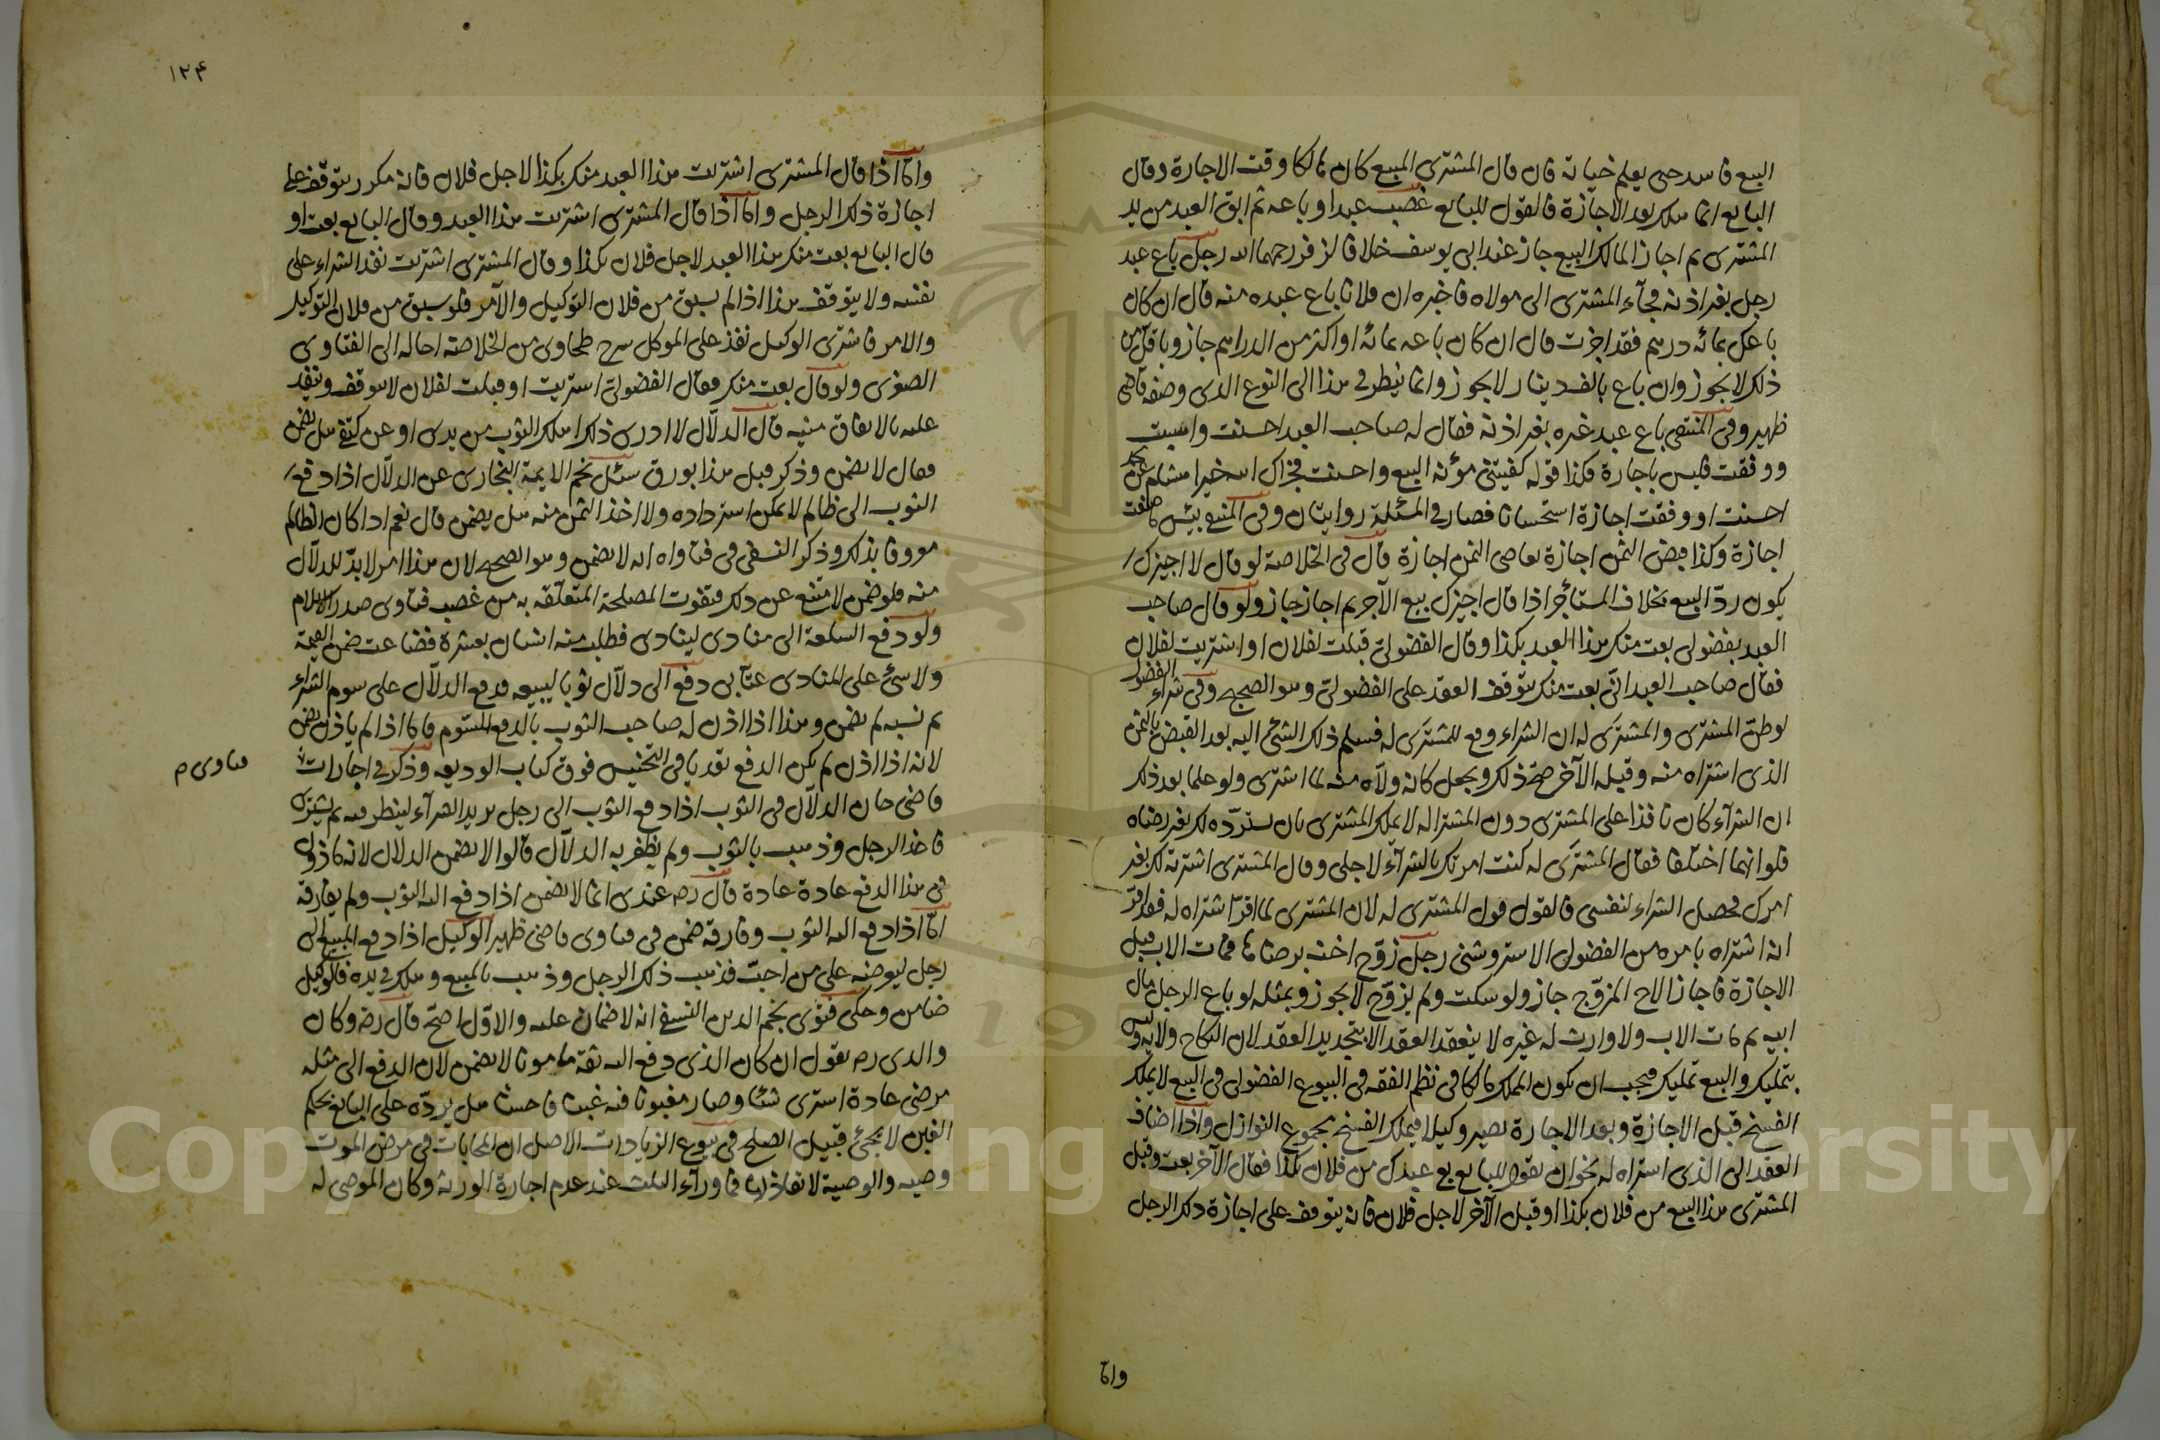 البيع فاسد حتى يعلم خيانة فان قال المشترى المبيع كان هالكا وقت الاجازة وقال
البايع انما هلك بعد الاجازة فالقول للبايع غصب عبدا وباعه ثم ابق العبد من يد
المشترى ثم اجاز المالك البيع جاز عند ابى يوسف خلافا لزفر رحمهما الله رجل باع عبد
رجل بغير اذنه فجآء المشترى الى مولاه فاخبره ان فلانا باع عبده منه قال ان كان
باعك بمائه درهم فقد اجزت قال ان كان باعه بمائه او اكثر من الدراهم جاز وباقل من
ذلك لا يجوز وان باع بالف دينار لا يجوز وانما ينظر فى هذا الى النوع الذى وصفه قاضى
ظهير وفى المنتقى باع عبد غيره بغير اذنه فقال له صاحب العبد احسنت واصبت
ووفقت فليس باجازة وكذا قوله كفيتنى مؤنة البيع واحسنت فجزاك الله خيرا
احسنت او وفقت اجازة استحسانا فصار فى المسئلة روايتان وفى المنتقى بئس ما صنعت
اجازة وكذا قبض الثمن اجازة تقاضى الثمن اجازة قال فى الخلاصة لو قال لا اجيزك
يكون ردّ البيع بخلاف المستأجر اذا قال لا اجيزك بيع الآجر ثم اجاز جاز ولو قال صاحب
العبد بفضولى بعت منك هذا العبد بكذا وقال الفضولىّ قبلت لفلان او اشتريت لفلان
فقال صاحب العبد انّى بعت منك يتوقف العقد على الفضولىّ وهو الصحيح وفى شراء الفضولى
لو ظنّ المشترى والمشترَى له ان الشراء وقع للمشترَى له فسلم ذلك الشئ اليه بعد القبض بالثمن
الذى اشتراه منه وقبله الآخر صحّ ذلك ويجعل كانه ولّاه منه لما اشترى ولو علما بعد ذلك
ان الشرآء كان نافذا على المشترى دون المشترا له لا يملك المشترى بان يستردّه لك بغير رضاه
فلو انهما اختلفا فقال المشترَى له كنت امرتك بالشرآء لاجلى وقال المشترى اشتريته لك بغير
امرك فحصل الشراء لنفسى فالقول قول المشترى له لان المشترى لما اقرّ اشتراه له فقد اقرّ
انه اشتراه بامره من الفضولى الاستروشنى رجل زوّج اخته برضاها فمات الاب قبل
الاجازة فاجاز الاخ المزوّج جاز ولو سكت ولم يزوّج لا يجوز وبمثله لو باع الرجل مال
ابيه ثم مات الاب ولا وارث له غيره لا ينعقد العقد الا بتجديد العقد لان النكاح ولاية وليس
بتمليك والبيع تمليك فيجب ان يكون المملك مالكا فى نظم الفقه فى البيوع الفضولى فى البيع لا يملك
الفسخ قبل الاجازة وبعد الاجازة يصير وكيلا فيملك الفسخ مجموع النوازل واذا اضاف
العقد الى الذى اشتراه له نحو ان يقول للبايع بع عبدك من فلان بكذا فقال الآخر بعت وقبل
المشترى هذا البيع من فلان بكذا او قبل الآخر لاجل فلان فانه يتوقف على اجازة ذلك الرجل
وامّا
١٢٤
وامّا اذا قال المشترى اشتريت هذا العبد منك بكذا لاجل فلان فانه يتوقف على
اجازة ذلك الرجل وامّا اذا قال المشترى اشتريت هذا العبد وقال البايع بعت او
قال البايع بعت منك هذا العبد لاجل فلان بكذا وقال المشترى اشتريت نفذ الشراء على
نفسه ولا يتوقف هذا اذا لم يسبق من فلان التوكيل والامر فلو سبق من فلان التوكيل
والامر فاشترى الوكيل نفذ على الموكل شرح طحاوى من الخلاصة احاله الى الفتاوى
الصغرى ولو قال بعت منك فقال الفضولىّ اشتريت او قبلت لفلان لا يتوقف وينفد
عليه بالاتفاق منيه قال الدلّال لا ادرى ذلك اهلك الثوب من يدى او عن كتفى هل يضمن
فقال لا يضمن وذكر قبل هذا بورق سئل نجم الايمة البخارى عن الدلّال اذا دفع
الثوب الى ظالم لا يمكن استرداده ولا اخذ الثمن منه هل يضمن قال نعم اذا كان الظالم
معروفا بذلك وذكر النسفى فى فتاواه انه لا يضمن وهو الصحيح لان هذا امر لا بدّ للدلّال
منه فلو ضمن لامتنع عن ذلك فتفوت المصلحة المتعلقه به من غصب فتاوى صدر الاسلام
ولو دفع السلعة الى منادى لينادى فطلب منه انسان بعشرة فضاعت ضمن القيمة
ولا شئ على المنادى عتّابى دفع الى دلّال ثوبا ليبيعه فدفع الدلّال على سوم الشراء
ثم نسيه لم يضمن وهذا اذا اذن له صاحب الثوب بالدفع للسّوم فامّا اذا لم ياذن يضمن
لانه اذا اذن لم يكن الدفع تعديا فى التجنيس فوق كتاب الوديعه وذكر فى اجارات
فتاوى م
قاضى خان الدلّال فى الثوب اذا دفع الثوب الى رجل يريد الشرآء لينظر فيه ثم يشترى
فاخذ الرجل وذهب بالثوب ولم يظفر به الدلّال قالوا لا يضمن الدلال لانه ماذون
فى هذا الدفع عادة قال رضه عندى انما لا يضمن اذا دفع اليه الثوب ولم يفارقه
امّا اذا دفع اليه الثوب وفارقه ضمن فى فتاوى قاضى ظهير الوكيل اذا دفع المبيع الى
رجل ليعرضه على من احبّ فذهب ذلك الرجل وذهب بالمبيع وهلك فى يده فالوكيل
ضامن وحكى فتوى نجم الدين النسفى انه لا ضمان عليه والاوّل اصحّ قال رضه وكان
والدى رحه يقول ان كان الذى دفع اليه ثقة مامونا لا يضمن لان الدفع الى مثله
مرضى عادة اشترى شئا وصار مغبونا فيه غبنا فاحشا هل يردّه على البايع بحكم
الغبن لا يجئ قبيل الصلح فى بيوع الزيادات الاصل ان المحابات فى مرض الموت
وصيه والوصية لا نفاذ لها فى ما ورآء الثلث عند عدم اجازة الورثة وكان الموصى له